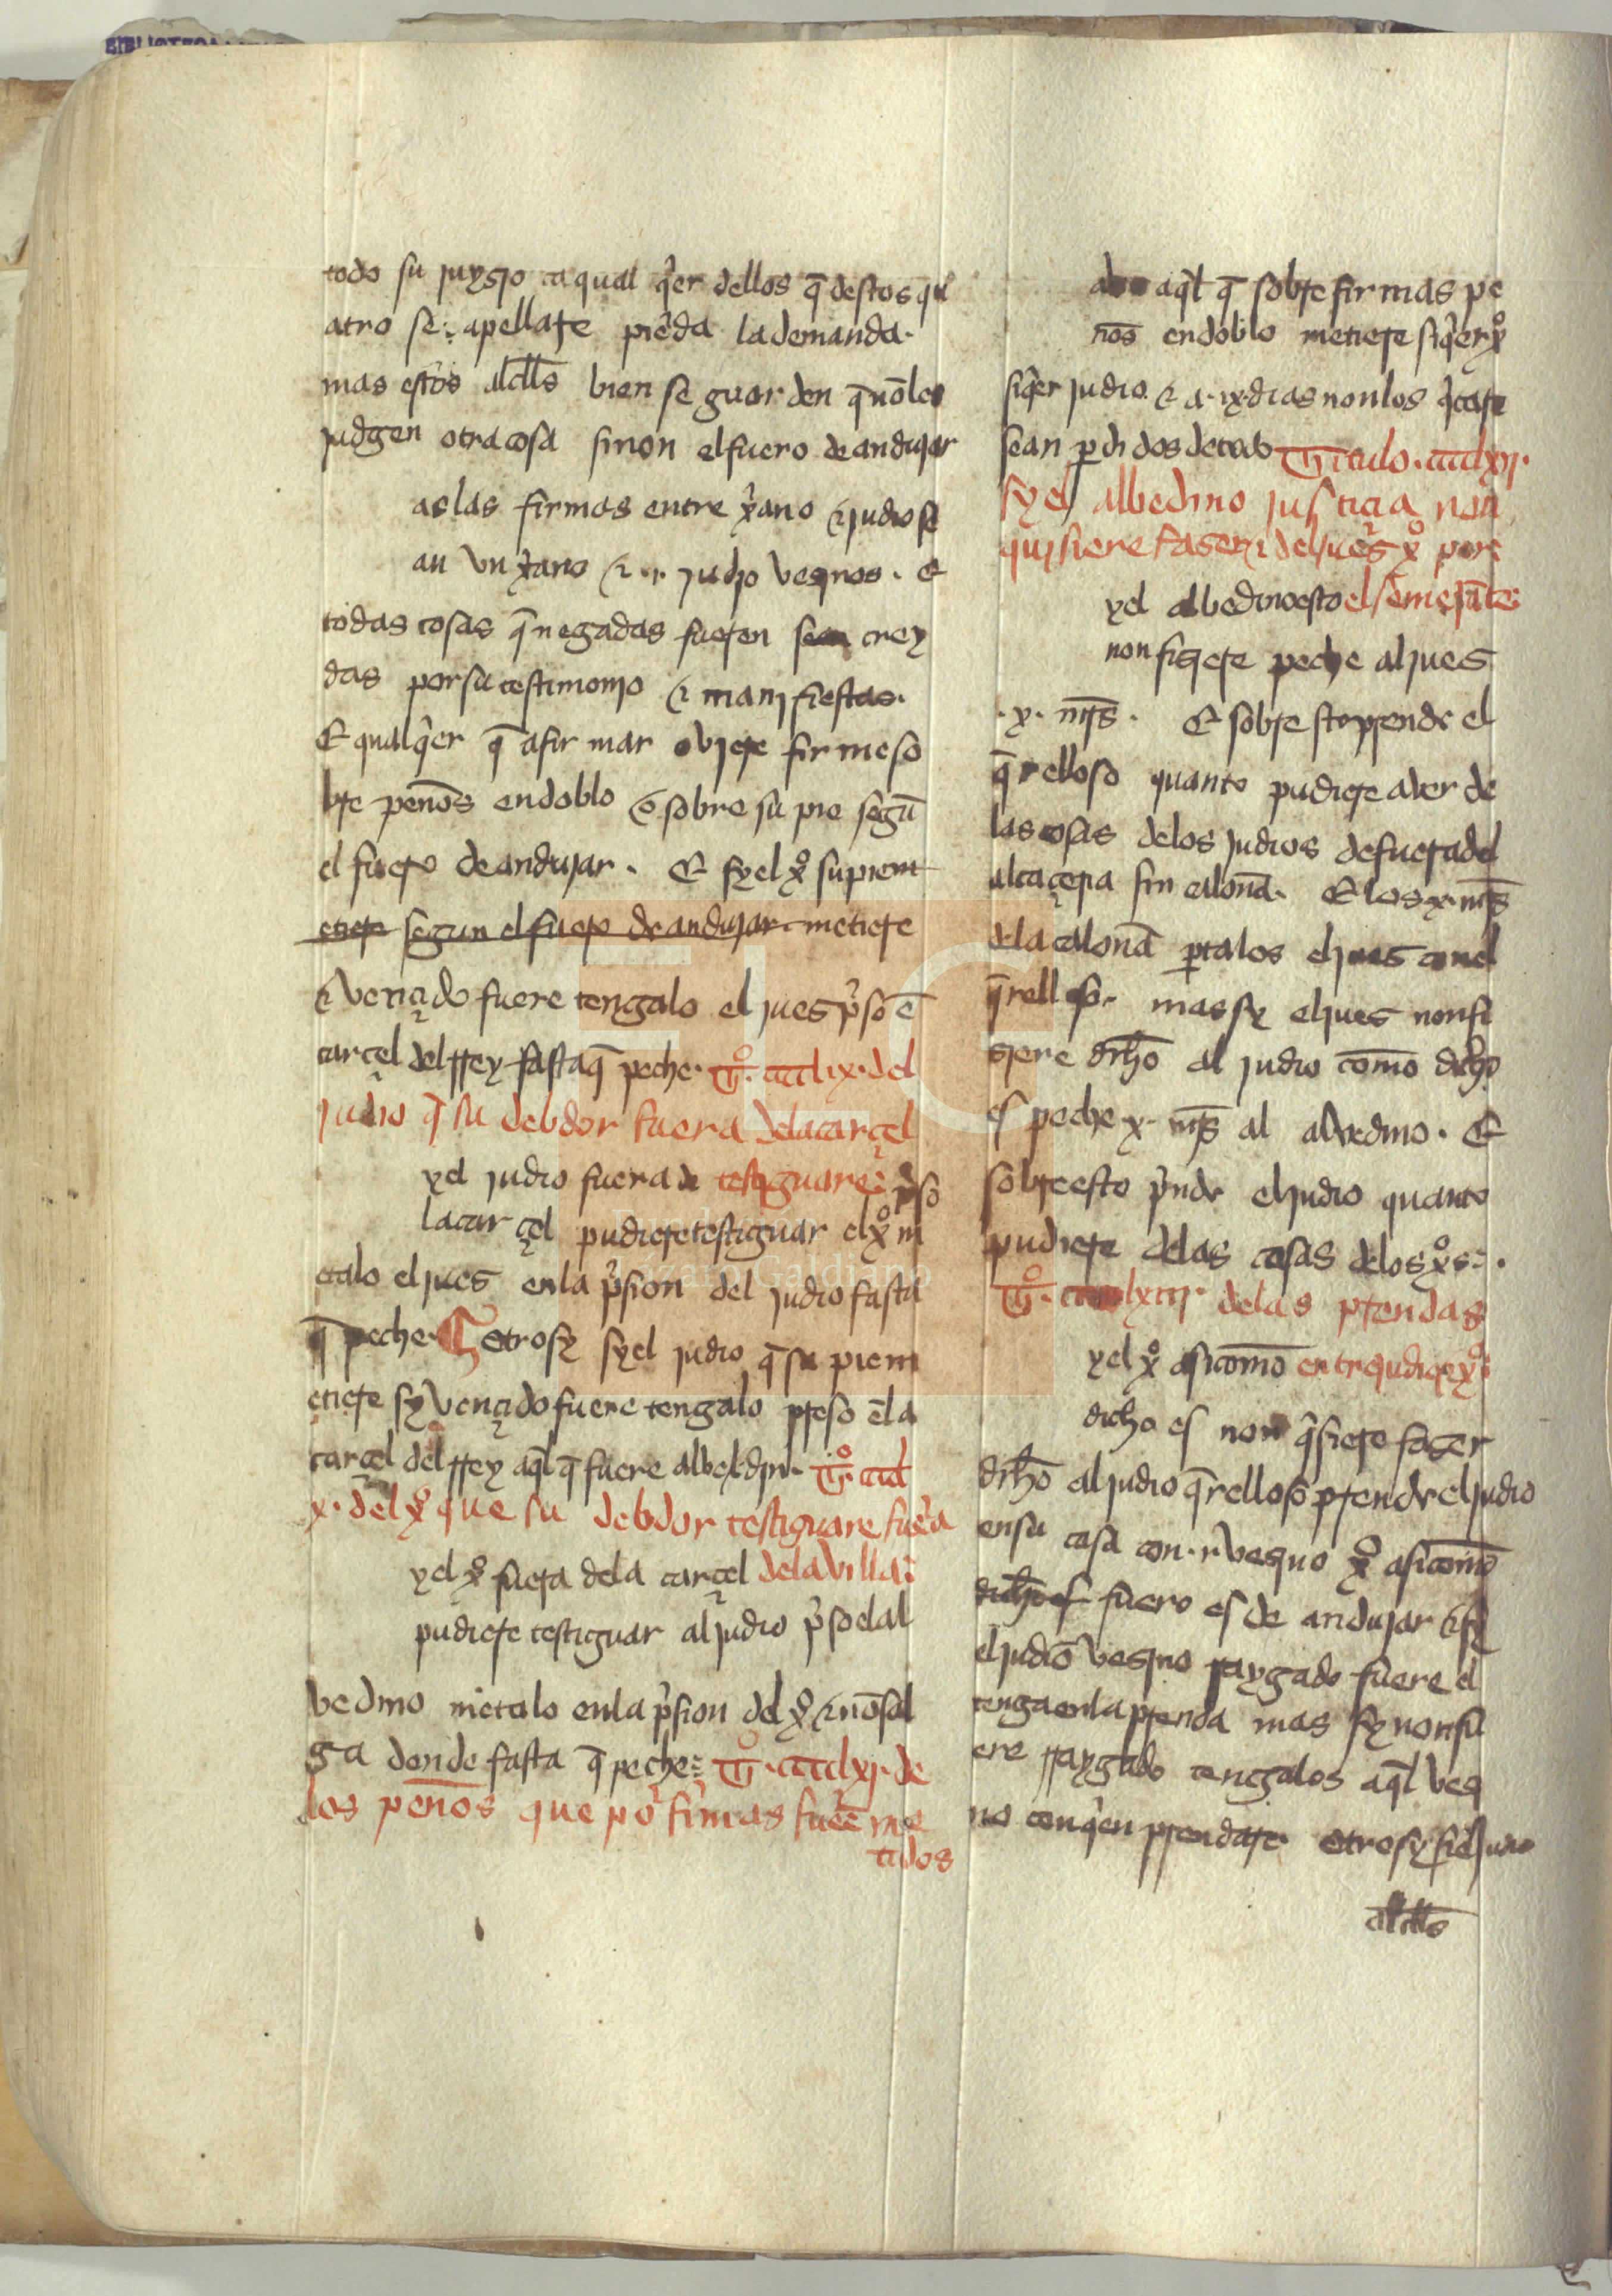 todo su juyzio ca qual q̃er dellos q̃ destos qu
atro se apellare piẽda la demanda.
mas estos alclls bien se guarden q̃ nõ les
judgen otra cosa sinon el fuero de andujar
as las firmas entre x̃ano ⁊ judio se
an vn x̃ano ⁊ .i. judio vezinos. E
todas cosas q̃ negadas fueren sean crey
das por su testimonjo ⁊ manifiestas.
E qualq̃er q̃ a firmar oviere firme so
bre penõs en doblo o sobre su pie segũ
el fuero de andujar. E sy el x̊ su piem
etiere segun el fuero de andujar metiere
⁊ vençido fuere tengalo el jues p̃so ẽ
carçel del rrey fasta q̃ peche. T̊. ccclix. del
judio q̃ su debdor fuera dela carçel
yel judio fuera de testiguare p̃so
la carçel pudiere testiguar el x̊ m
etalo el jues en la p̃sion del judio fasta
q̃ peche. Et otrosy sy el judio q̃ su piem
etiere sy vençido fuere tengalo preso ẽ la
carçel del rrey aq̃l q̃ fuere albedin. T̊. cccl
x. del x̊ que su debdor testiguare fuera
yel x̊ fuera dela carçel dela villa
pudiere testiguar al judio p̃so el al
vedino metalo en la p̃sion del x̊ ⁊ nõ sal
ga dende fasta q̃ peche T̊. ccclxj. de
los penõs que por firmas fuerẽ me
tidos
aq̃l q̃ sobre firmas pe
nõs en doblo metiere siq̃er x̊
siq̃er judio ⁊ a .ix. dias non los q̃tare
sean p̱didos de todo Titulo. ccclxij.
sy el albedino justicia non
quisiere faser ⁊ del jues x̊ por
yel albedino esto el semejãte
non fiziere peche al jues
.x. mr̃s. E sobre sto prende el
q̃relloso quanto pudiere aver de
las cosas delos judios de fuera del
alcaçeria sin calonã. E los .x. mr̃s
dela calonã p̱talos el jues con el
q̃relloso. mas sy el jues non fi
ziere dr̃ho al judio como dicho
es peche .x. mr̃s al alvedino. E
sobre esto p̃nde el judio quanto
pudiere delas cosas delos x̊s.
T̊. ccclxiij. delas prendas
yel x̊ asi como entre judio ⁊ x̊
dicho es non q̃siere faser
dr̃ho al judio q̃relloso prende el judio
en su casa con .i. vezino x̊ asi como
dicho es fuero es de andujar ⁊ sy
el judio vezino raygado fuere el
tenga en la prenda mas sy non fu
ere rraygado tengalos aq̃l vezi
no con q̃en prendare. et otrosy si el judio
alclls